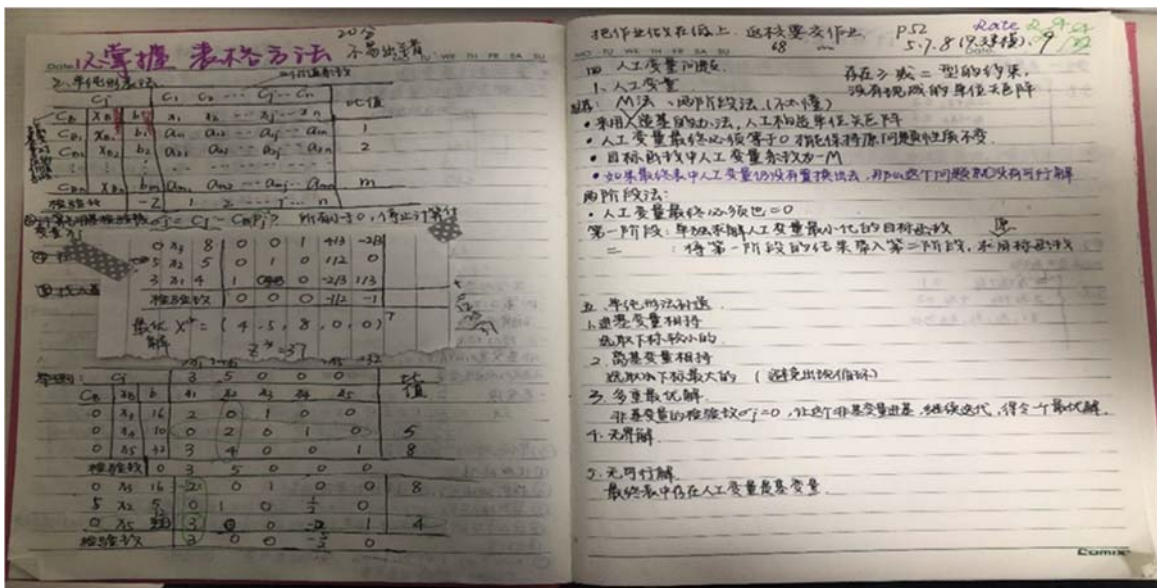 20分
Date 掌握 表格方法 不易出错
TU WE TH FR SA SU
Cj C1 C2 --- Cj -- Cn 比值
CB XB b x1 x2 --- xj --- xn
CB1 XB1 b1 a11 a12 --- a1j --- a1n 1
CB2 XB2 b2 a21 a22 --- a2j --- a2n 2
CBn XBn bm am1 am2 --- amj --- amn m
检验数 -Z 1 2 --- j -- n
σj = Cj - CBPj 所有小于0,停止计算
0 x3 8 0 0 1 4/3 -2/3
5 x2 5 0 1 0 1/2 0
3 x1 4 1 0 -2/3 1/3
检验数 0 0 0 -1/2 -1
最优解 X* = (4.5.8.0.0)T
Z* = 37
Cj 3 5 0 0 0 比值
CB XB b x1 x2 x3 x4 x5
0 x3 16 2 0 1 0 0
0 x4 10 0 2 0 1 0 5
0 x5 32 3 4 0 0 1 8
检验数 0 3 5 0 0 0
0 x3 16 2 0 1 0 0 8
5 x2 5 0 1 0 1/2 0
0 x5 12 3 0 0 -2 1 4
检验数 3 0 0 -5/2 0
把作业写在纸上. 返校要交作业. P52 Date
68 5.7.8 9
四 人工变量问题
存在≥或=型的约束,
1. 人工变量
没有现成的单位矩阵
M法、两阶段法.(不太懂)
• 采用人造基的办法,人工构造单位矩阵
• 人工变量最终必须等于0才能保持原问题性质不变.
• 目标函数中人工变量系数为-M
• 如果最终表中人工变量仍没有置换出去,那么这个问题就没有可行解
两阶段法:
• 人工变量最终必须也=0
第一阶段: 单独求解人工变量最小化的目标函数 原
二 : 将第一阶段的结果带入第二阶段,求目标函数
五.单纯形法补遗
1.进基变量相持
选取下标较小的.
2.离基变量相持
选取下标最大的 (避免出现循环)
3.多重最优解
非基变量的检验数σj=0,让这个非基变量进基,继续迭代,得令一个最优解.
4.无界解
5.无可行解
最终表中存在人工变量是基变量.
Comix